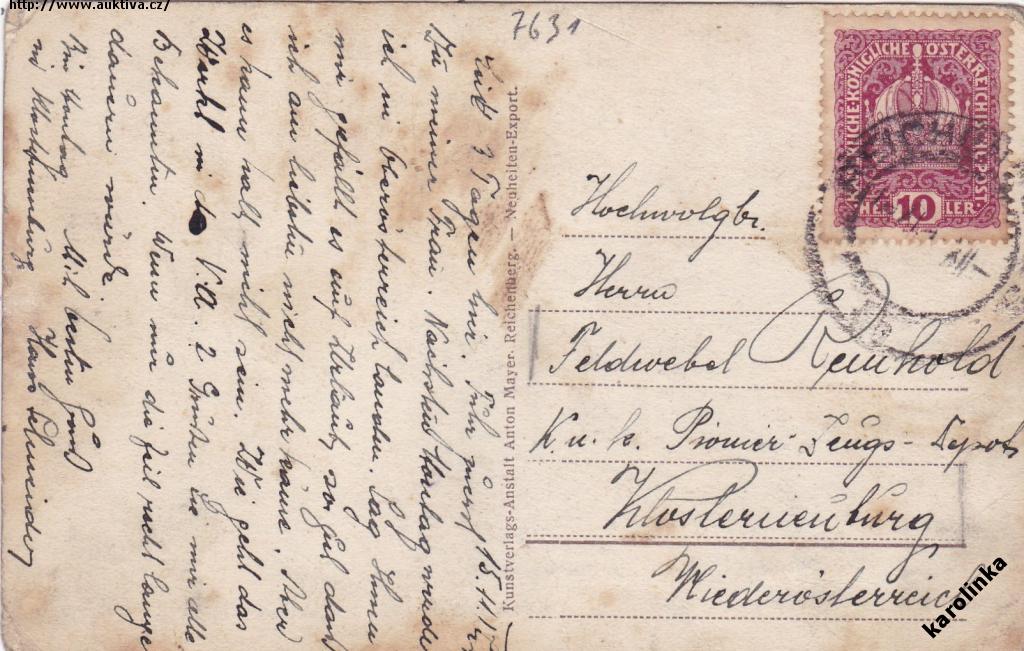 http://www.auktiva.cz/
7631
KAISERLICHE KÖNIGLICHE ÖSTERREICHISCHE POST
HELLER 10 HELLER
REICHEN
XII
Hochwolgbr.
Herrn
Feldwebel Reinhold
K. u. k. Pionier-Zeugs-Depot
Klosterneuburg
Niederösterreich
Kunstverlags-Anstalt Anton Mayer, Reichenberg. — Neuheiten-Export.
15.11.17
Seit 3 Tagen hier. Fuhr zuerst
zu meiner Frau. Nächsten Montag werde
ich in Oberösterreich landen. Sag Ihnen
mir gefällt es auf Urlaub so gut dass
ich am liebsten nicht mehr käme. Aber
es kann halt nicht sein. Wie geht das
Werkl in der V.A. ? Grüßen Sie mir alle
Bekannten. Wenn nur die Zeil recht lange
dauern würde.
Bin Montag
in Klosterneuburg
Mit besten Gruß
Hans
karolinka